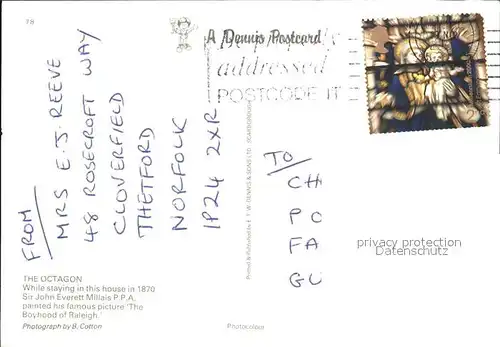 78
A Dennis Postcard
addressed
POSTCODE IT
FROM
MRS E.J. REEVE
48 ROSECROFT WAY
CLOVERFIELD
THETFORD
NORFOLK
IP24 2XR
TO
CH
PO
FA
GU
privacy protection
Datenschutz
THE OCTAGON
While staying in this house in 1870
Sir John Everett Millais P.P.A.
painted his famous picture 'The
Boyhood of Raleigh.'
Photograph by B. Cotton
Photocolour